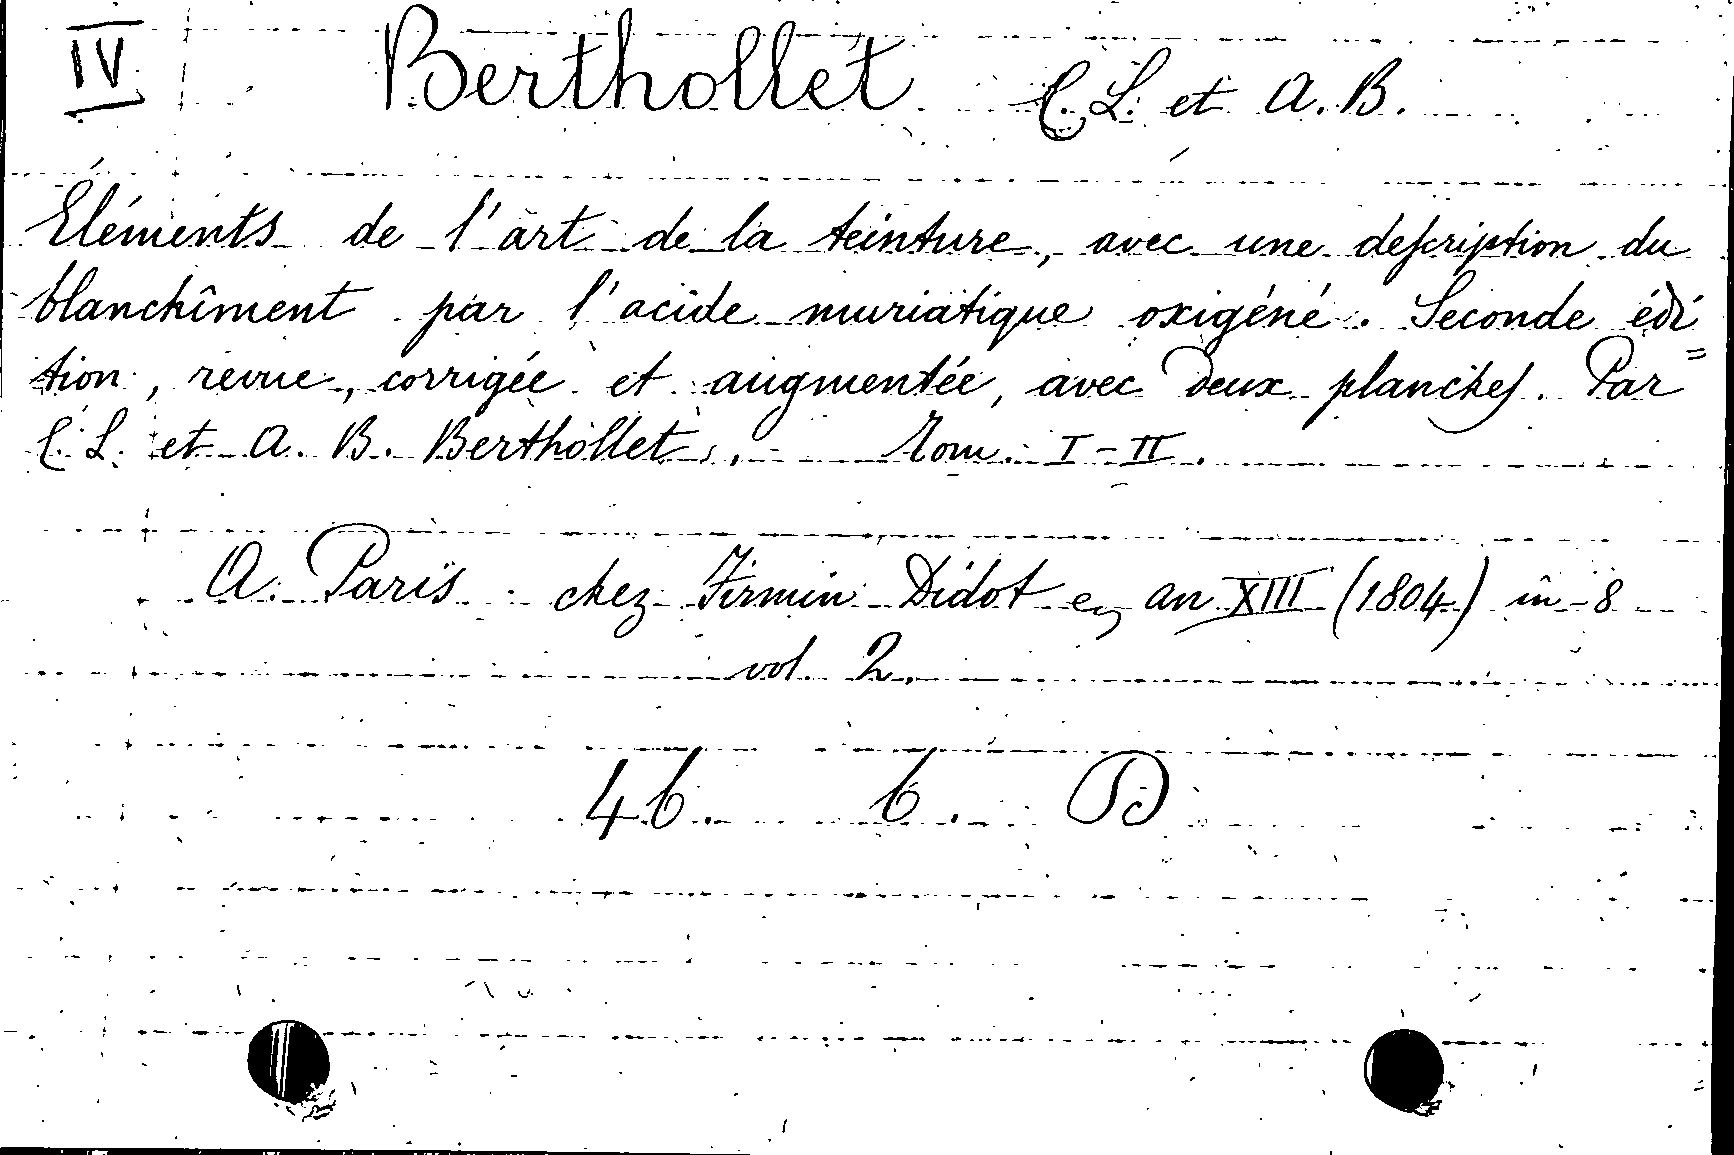 IV Berthollet C. L. et A. B.
Eléments de l'art de la teinture, avec une description du
blanchîment par l'acide muriatique oxigéné. Seconde édi=
tion, revue, corrigée et augmentée, avec deux planches. Par
C. L. et A. B. Berthollet. Tom. I-II.
A Paris chez Firmin Didot en an XIII (1804) in-8
vol. 2.
46. 6. D